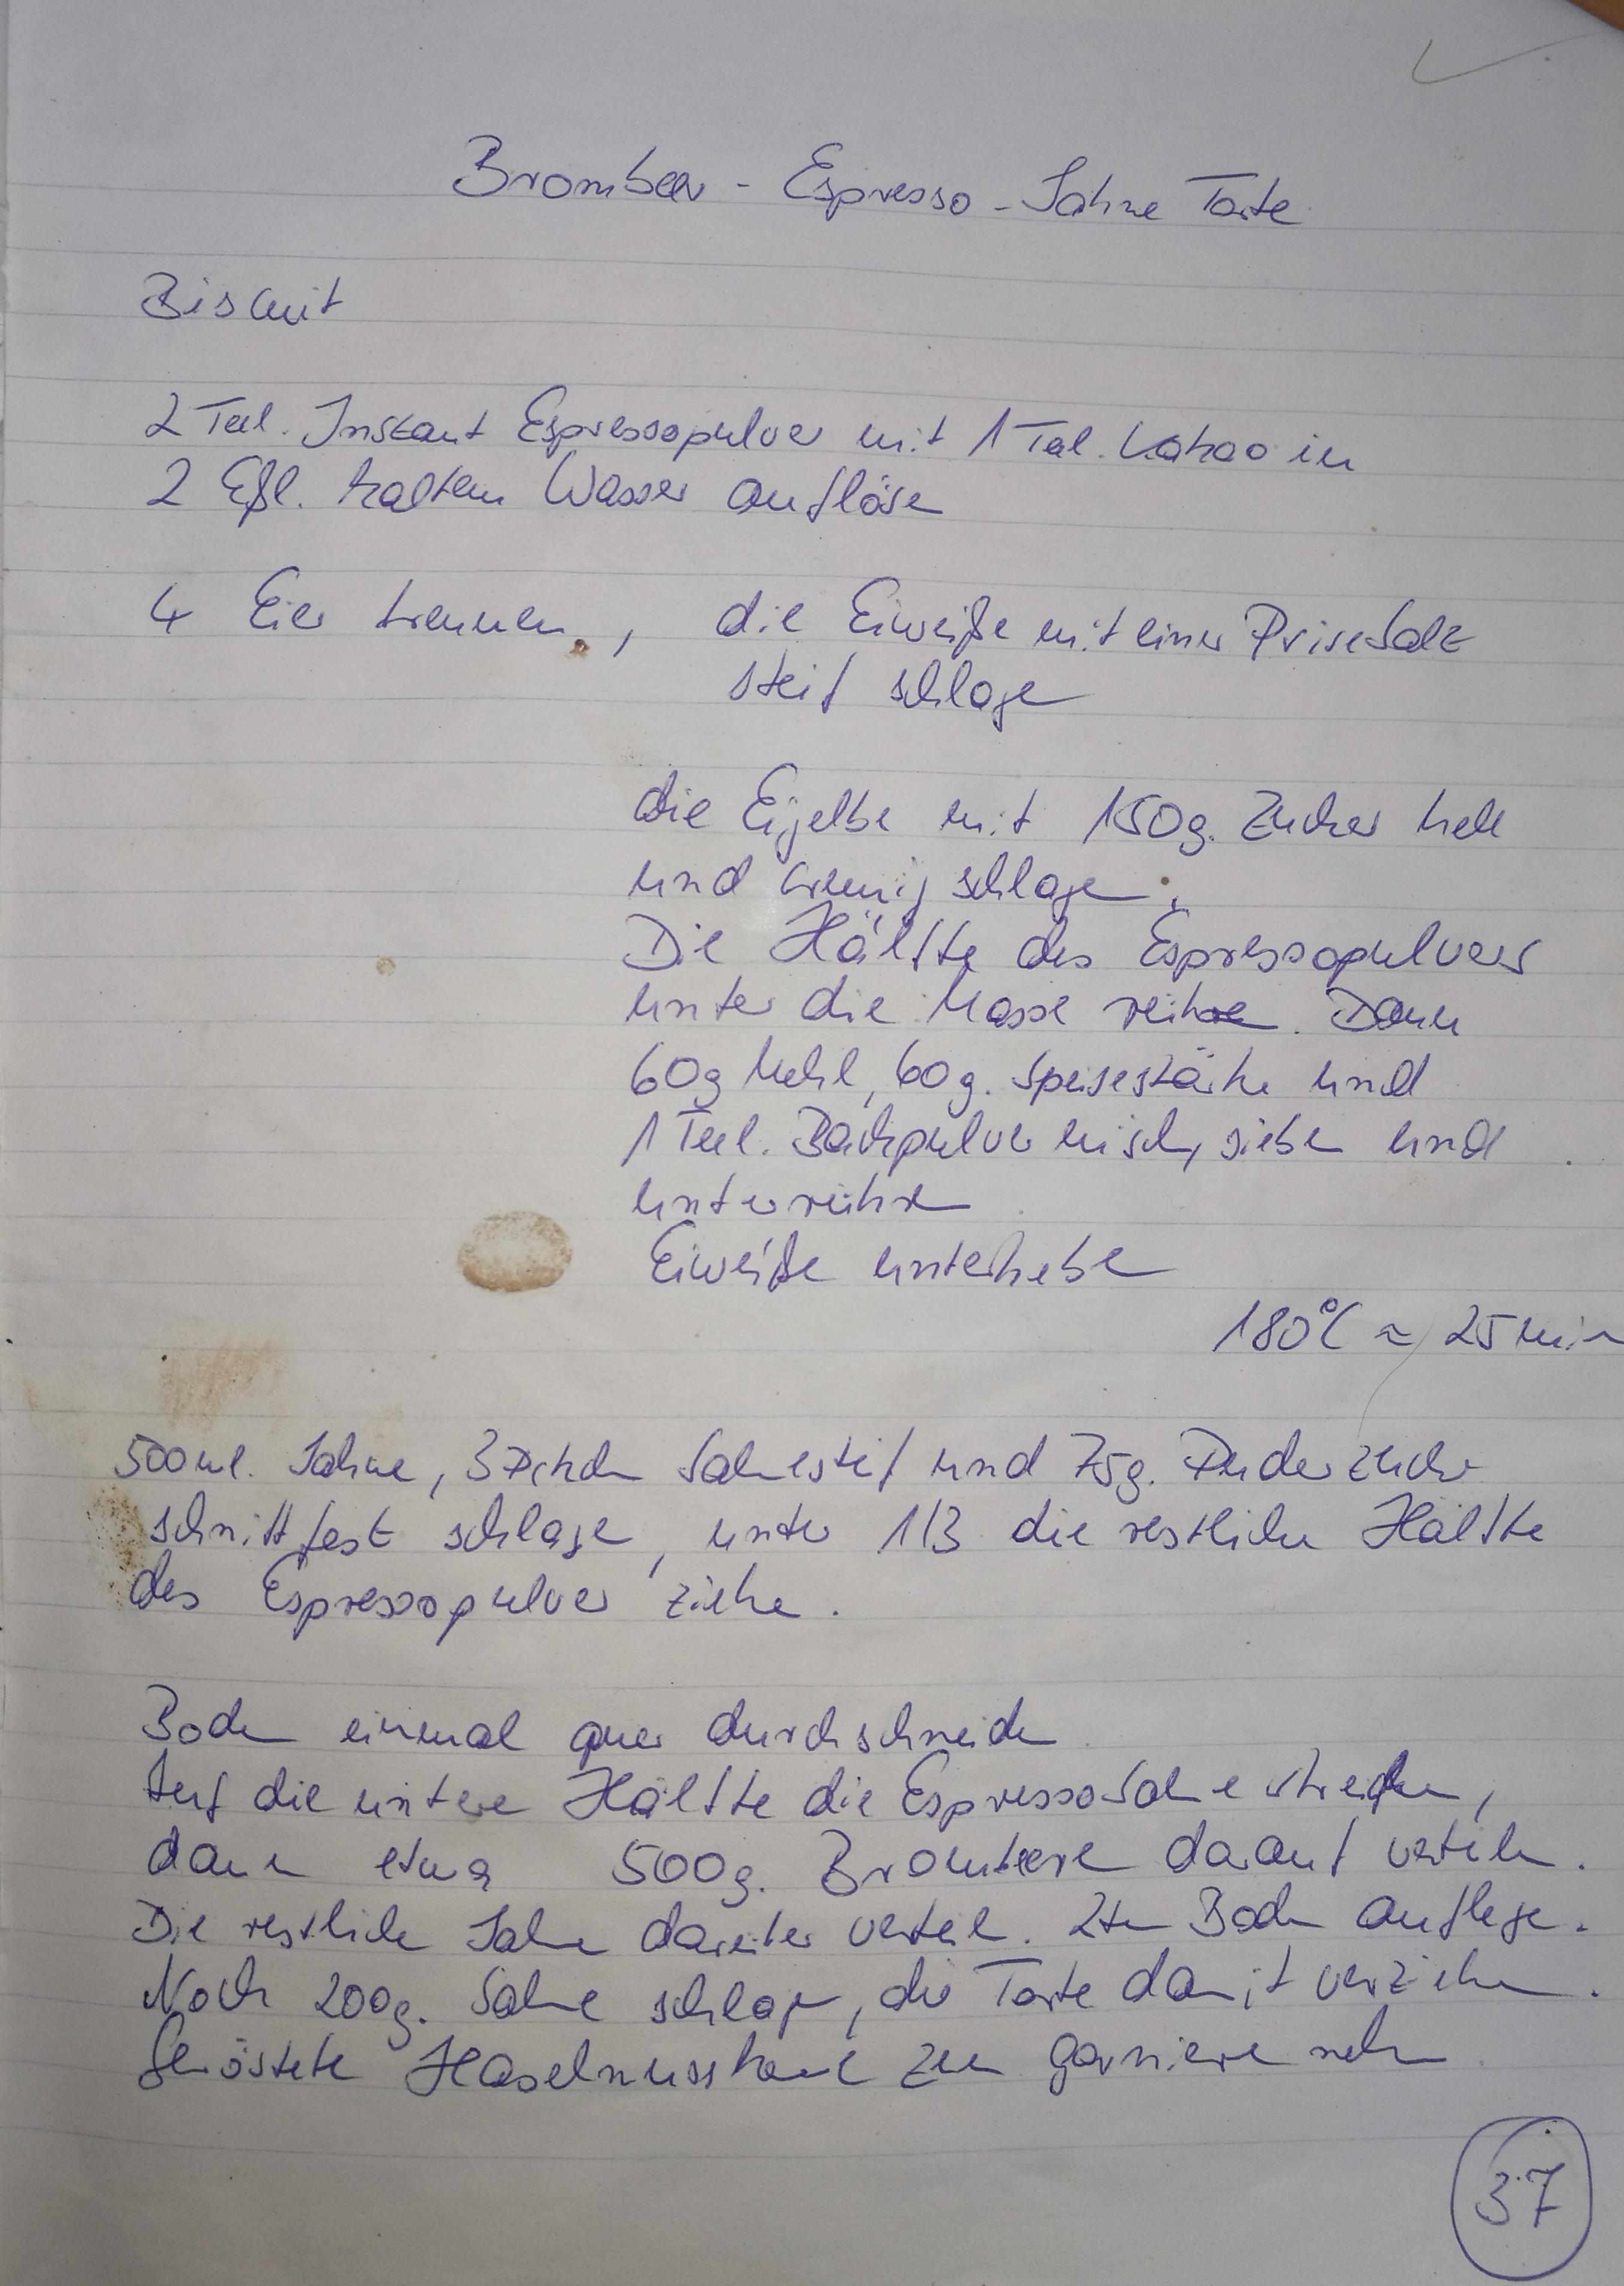 Brombeer - Espresso - Sahne Torte
Biscuit
2 Teel. Instant Espressopulver mit 1 Teel. Kakao in
2 Eßl. kaltem Wasser auflösen
4 Eier trennen, die Eiweiße mit einer Prise Salz
steif schlagen
die Eigelbe mit 150g. Zucker hell
und cremig schlagen.
Die Hälfte des Espressopulvers
unter die Masse rühren. Dann
60g Mehl, 60g. Speisestärke und
1 Teel. Backpulver mischen, sieben und
unterrühren
Eiweiße unterheben
180°C ≈ 25 min
500ml. Sahne, 3 Pckchen Sahnesteif und 75g. Puderzucker
schnittfest schlagen, unter 1/3 die restliche Hälfte
des Espressopulver ziehen.
Boden einmal quer durchschneiden
Auf die untere Hälfte die Espressosahne streichen,
dann etwa 500g. Brombeeren darauf verteilen.
Die restliche Sahne darüber verteilen. 2ten Boden auflegen.
Noch 200g. Sahne schlagen, die Torte damit verziehen.
Geröstete Haselnusskerne zum garnieren nehmen
37